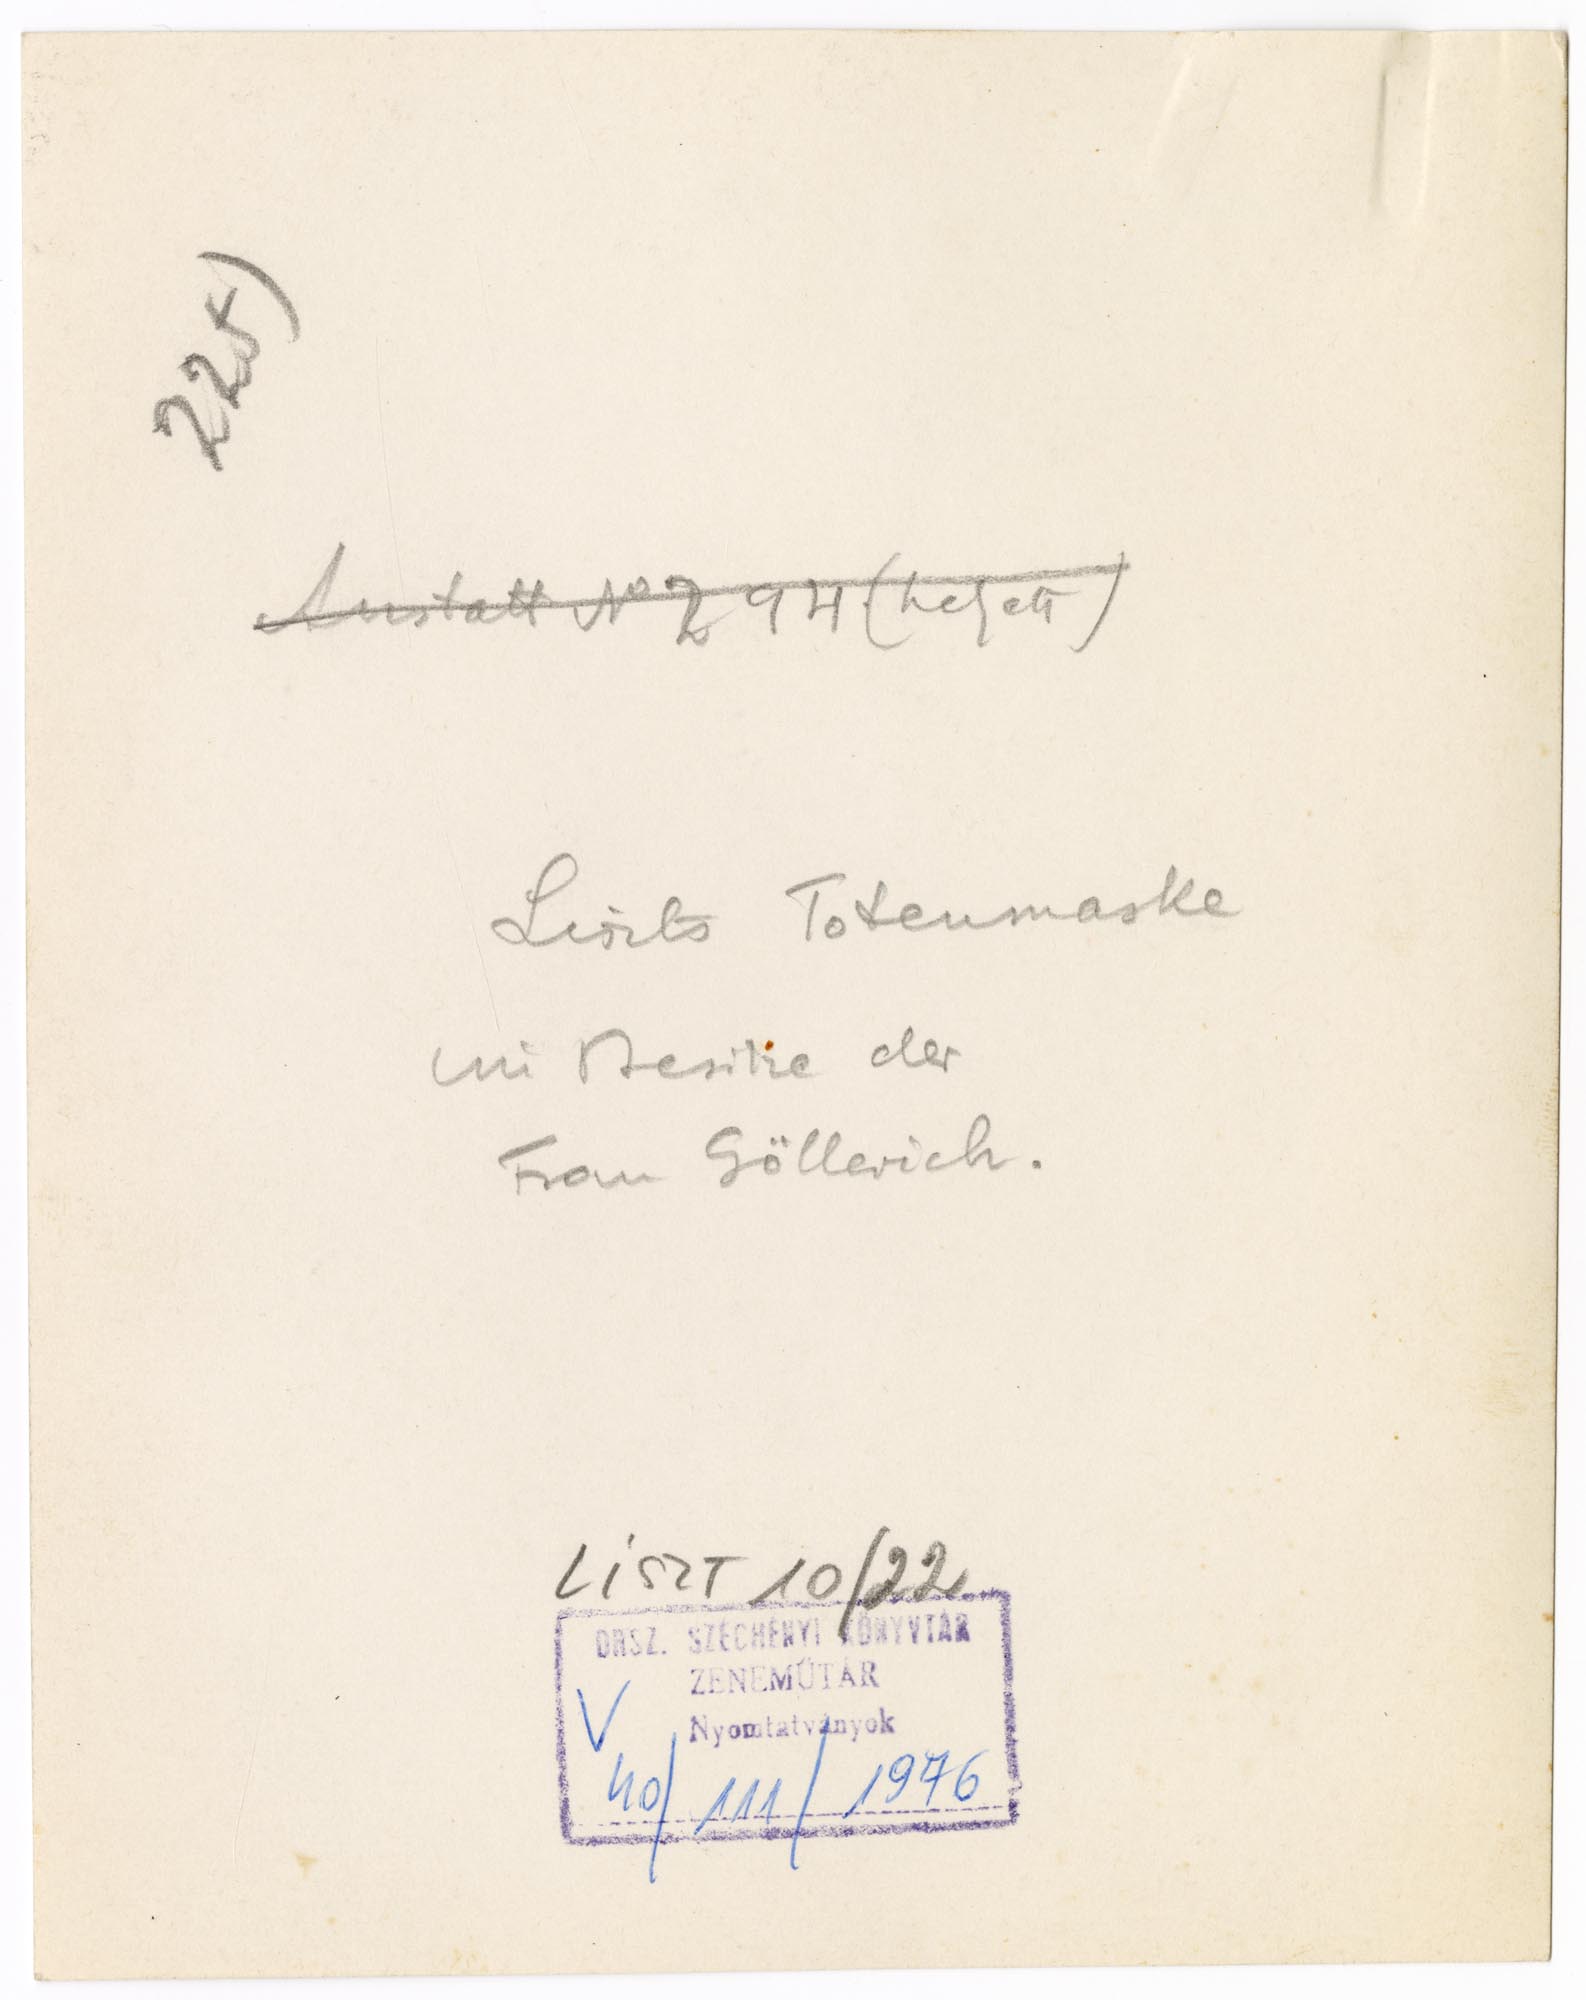 225)
Anstatt Nº 294 (helyett)
Liszts Totenmaske
im Besitze der
Frau Göllerich.
LiSZT 10/22
ORSZ. SZÉCHÉNYI KÖNYVTÁR
ZENEMŰTÁR
Nyomtatványok
V
40/111/1976